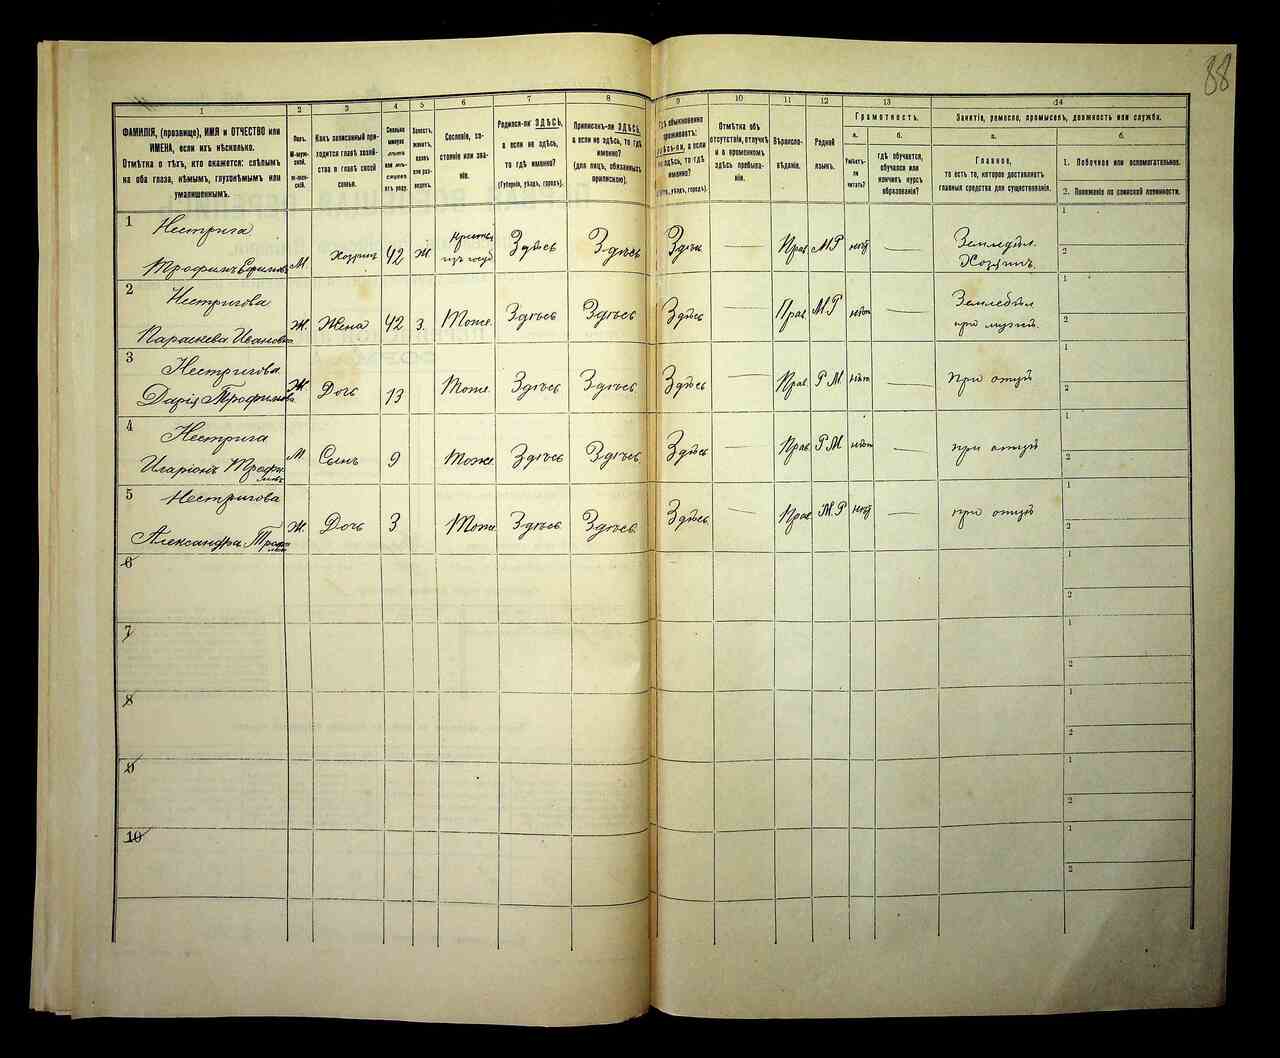 88
1 2 3 4 5 6 7 8 9 10 11 12 13 14
ФАМИЛІЯ, (прозвище), ИМЯ и ОТЧЕСТВО или
ИМЕНА, если ихъ нѣсколько.
Отмѣтка о тѣхъ, кто окажется: слѣпымъ
на оба глаза, нѣмымъ, глухонѣмымъ или
умалишеннымъ.
Полъ.
М-муж-
ской.
Ж-жен-
скій.
Какъ записанный при-
ходится главѣ хозяй-
ства и главѣ своей
семьи.
Сколько
минуло
лѣтъ
или мѣ-
сяцевъ
отъ роду.
Холостъ,
женатъ,
вдовъ
или раз-
веденъ.
Сословіе, со-
стояніе или зва-
ніе.
Родился-ли ЗДѢСЬ,
а если не здѣсь,
то гдѣ именно?
(Губернія, уѣздъ, городъ).
Приписанъ-ли ЗДѢСЬ,
а если не здѣсь, то гдѣ
именно?
(для лицъ, обязанныхъ
припискою).
Гдѣ обыкновенно
проживаетъ:
здѣсь-ли, а если
не здѣсь, то гдѣ
именно?
(Губернія, уѣздъ, городъ).
Отмѣтка объ
отсутствіи, отлучкѣ
и о временномъ
здѣсь пребыва-
ніи.
Вѣроиспо-
вѣданіе.
Родной
языкъ.
Грамотность.
а. б.
Умѣетъ-
ли
читать?
гдѣ обучается,
обучался или
кончилъ курсъ
образованія?
Занятія, ремесло, промыселъ, должность или служба.
а. б.
Главное,
то есть то, которое доставляетъ
главныя средства для существованія.
1. Побочное или вспомогательное.
2. Положеніе по воинской повинности.
1 Нестрига
Трофимъ Ефимовъ М. Хозяинъ 42 Ж. Крестьян. изъ госуд. Здѣсь Здѣсь Здѣсь — Прав. М Р нѣтъ — Земледѣл. Хозяинъ. 1 2
2 Нестригова
Параскева Ивановна Ж. Жена 42 З. Тоже. Здѣсь Здѣсь Здѣсь — Прав. М Р нѣтъ — Земледѣл. при мужѣ. 1 2
3 Нестригова
Дарія Трофимова Ж. Дочь 13 Тоже. Здѣсь Здѣсь. Здѣсь — Прав. Р М. нѣт — при отцѣ 1 2
4 Нестрига
Иларіонъ Трофимовъ М Сынъ 9 Тоже. Здѣсь Здѣсь. Здѣсь — Прав. Р М нѣт — при отцѣ 1 2
5 Нестригова
Александра Трофимова Ж. Дочь 3 Тоже Здѣсь Здѣсь. Здѣсь — Прав М. Р нѣтъ — при отцѣ 1 2
6 1 2
7 1 2
8 1 2
9 1 2
10 1 2